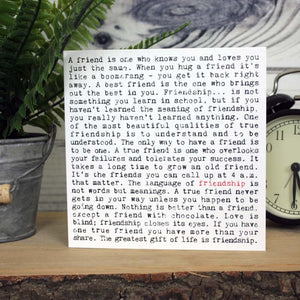 A friend is one who knows you and loves you
just the same. When you hug a friend it's
like a boomerang - you get it back right
away. A best friend is the one who brings
out the best in you. Friendship... is not
something you learn in school, but if you
haven't learned the meaning of friendship,
you really haven't learned anything. One
of the most beautiful qualities of true
friendship is to understand and to be
understood. The only way to have a friend is
to be one. A true friend is one who overlooks
your failures and tolerates your success. It
takes a long time to grow an old friend.
It's the friends you can call up at 4 a.m.
that matter. The language of friendship is
not words but meanings. A true friend never
gets in your way unless you happen to be
going down. Nothing is better than a friend,
except a friend with chocolate. Love is
blind; friendship closes its eyes. If you have
one true friend you have more than your
share. The greatest gift of life is friendship.